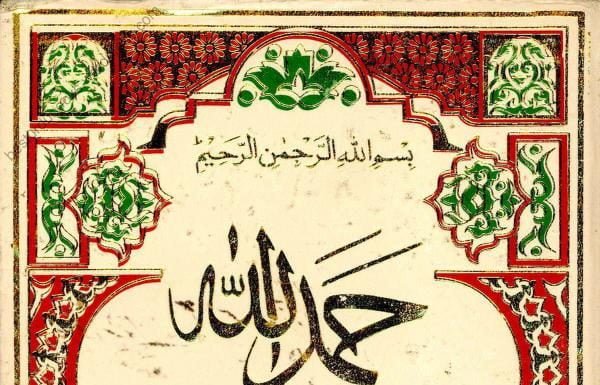 بسم الله الرَّحمٰنِ الرَّحِيمِ
حمد الله